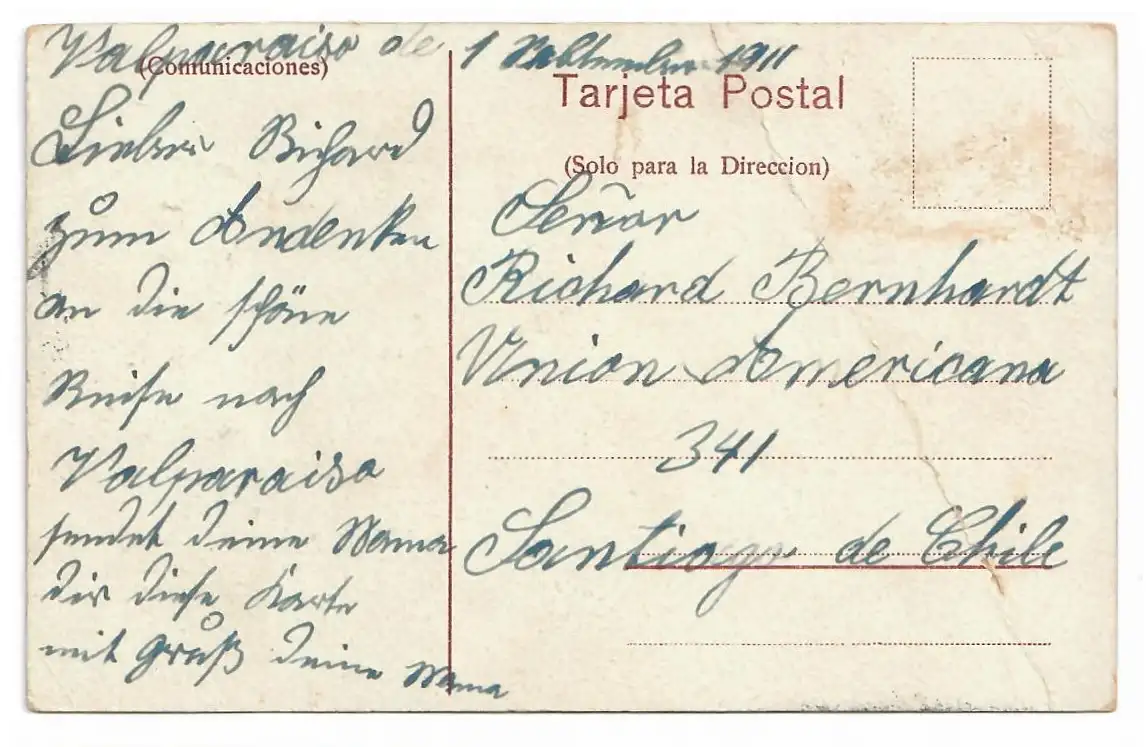 Valparaiso de 1 September 1911
(Comunicaciones)
Lieber Richard
zum Andenken
an die schöne
Reise nach
Valparaiso
sendet deine Mama
dir diese Karte
mit Gruß deine Mama
Tarjeta Postal
(Solo para la Direccion)
Señor
Richard Bernhardt
Union Americana
341
Santiago de Chile